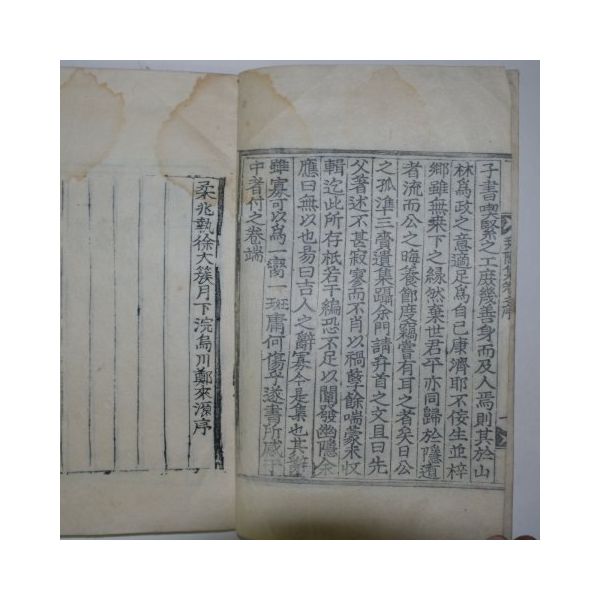 子書喫緊之工庶幾善身而及人焉則其於山
林爲政之意適足爲自己康濟耶不佞生並梓
鄉雖無乘下之緣然棄世君平亦同歸於隱遺
者流而公之晦養節度竊嘗有耳之者矣日公
之孤準三賚遺集躡余門請弁首之文且曰先
父著述不甚寂寥而不肖以禍孼餘喘蒙未收
輯迄此所存祇若干編恐不足以闡發幽隱余
應曰無以也易曰吉人之辭寡今是集也其辭
雖寡可以爲一臠一斑庸何傷乎遂書所感于
中者付之卷端
柔兆執徐大簇月下浣烏川鄭來源序